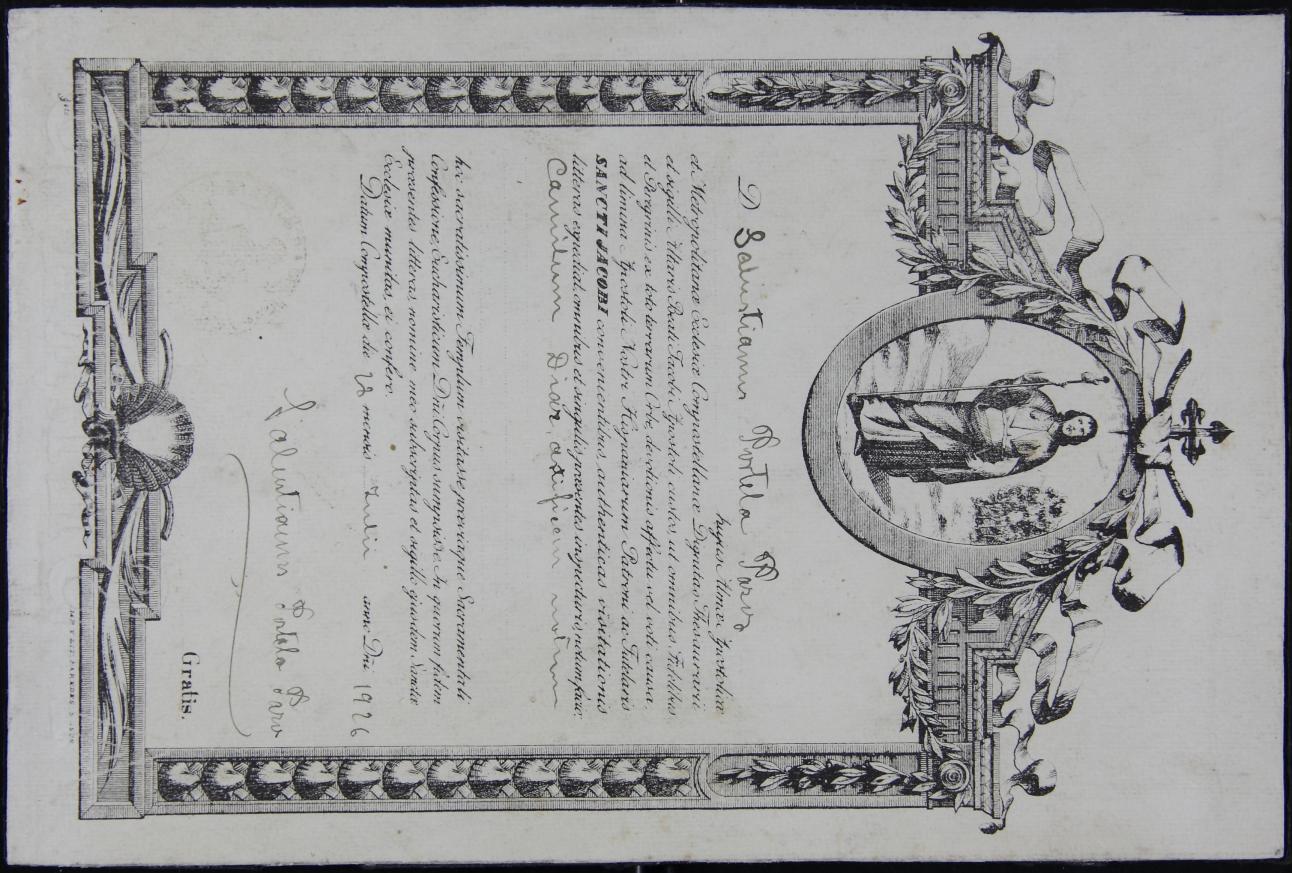 D Salustianus Portela Pazos
hujus Almæ Apostolicæ
et Metropolitanæ Ecclesiæ Compostellanæ Deputatus Thesaurarii
et sigilli Altaris Beati Jacobi Apostoli custos, ut omnibus Fidelibus
et Peregrinis ex toto terrarum Orbe, devotionis affectu vel voti causa,
ad limina Apostoli Nostri Hispaniarum Patroni ac Tutelaris
SANCTI JACOBI convenientibus, authenticas visitationis
litteras expediat, omnibus et singulis præsentes inspecturis, notum facio:
Camilum Diaz
hoc sacratissimum Templum visitasse, prœviaque Sacramentali
Confessione, Eucharisticum Dñi Corpus sumpsisse. In quorum fidem
præsentes litteras, nomine meo subscriptas et sigillo ejusdem Sanctæ
Ecclesiæ munitas, ei confero.
Datum Compostellæ die mensis Julii anno Dñi 1926
Salustianus Portela Pazos
Gratis.